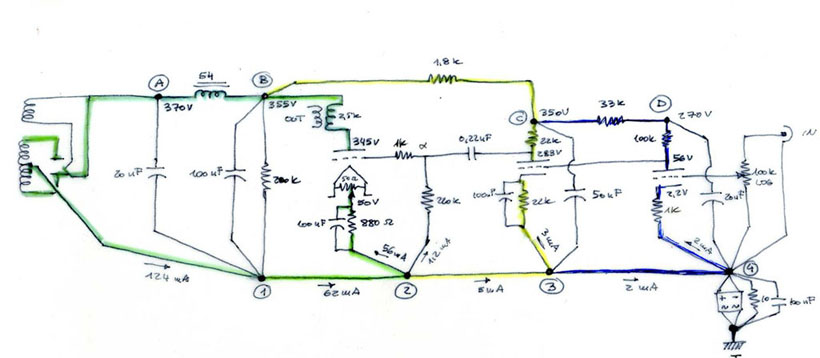 1.8k
5H
A
B
370V
355V
OUT
2,5k
C
350V
33k
D
270V
345V
1k
α
0,22uF
22k
283V
100k
56V
IN
20uF
100uF
50V
880 Ω
100uF
220k
100uF
22k
50uF
2,2V
1k
20uF
100k
LOG
56mA
1,2mA
3mA
2mA
124 mA
1
62mA
2
5mA
3
2 mA
4
+ -
~ ~
10
100nF